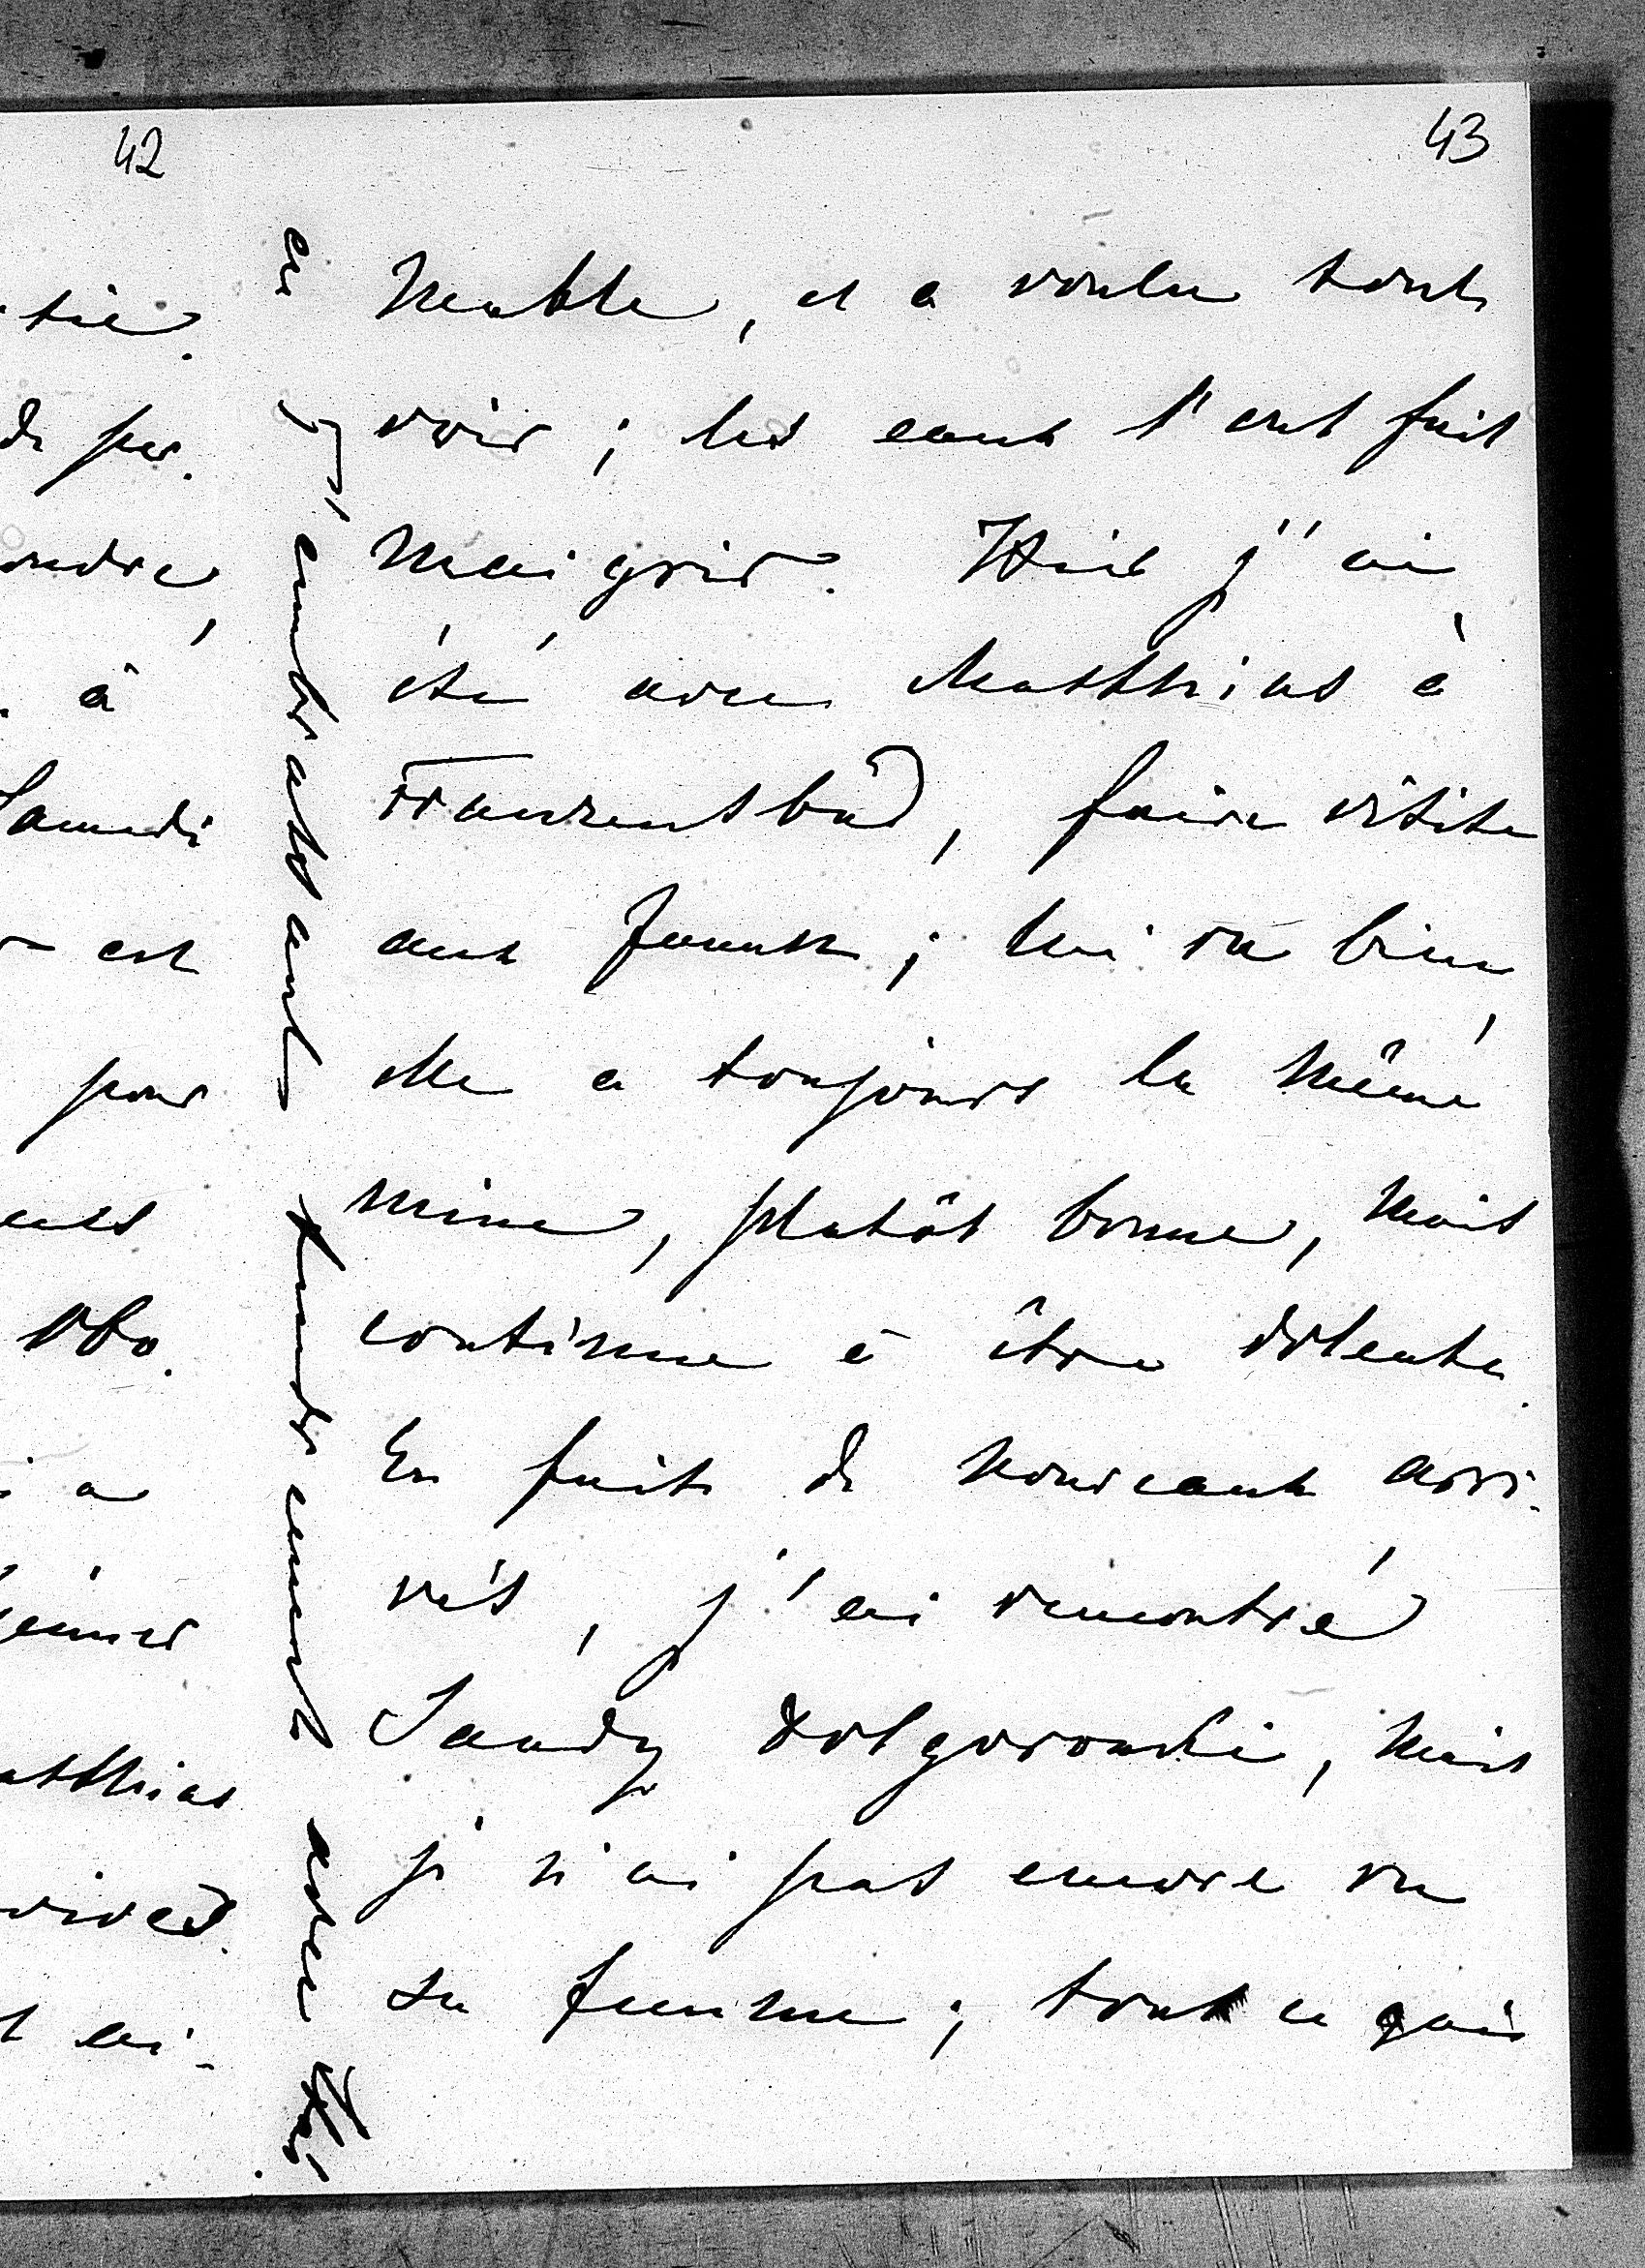 42
tié.
de par
ondre,
à
Samedi
est
pour
Obo
a
atthias
rives
ai-
43
meuble, et a voulu tout
voir ; les eaux l'ont fait
maigrir. Hier j'ai
été avec Matthias à
Franzensbad, faire visite
aux Funk ; lui va bien,
elle a toujours la même
mine, plutôt bonne, mais
continue à être dolente.
En fait de nouveaux arri-
vés, j'ai rencontré
Sandy Dolgorouki, mais
je n'ai pas encore vu
sa femme ; tout ce qui
en t'embrassant tendrement avec